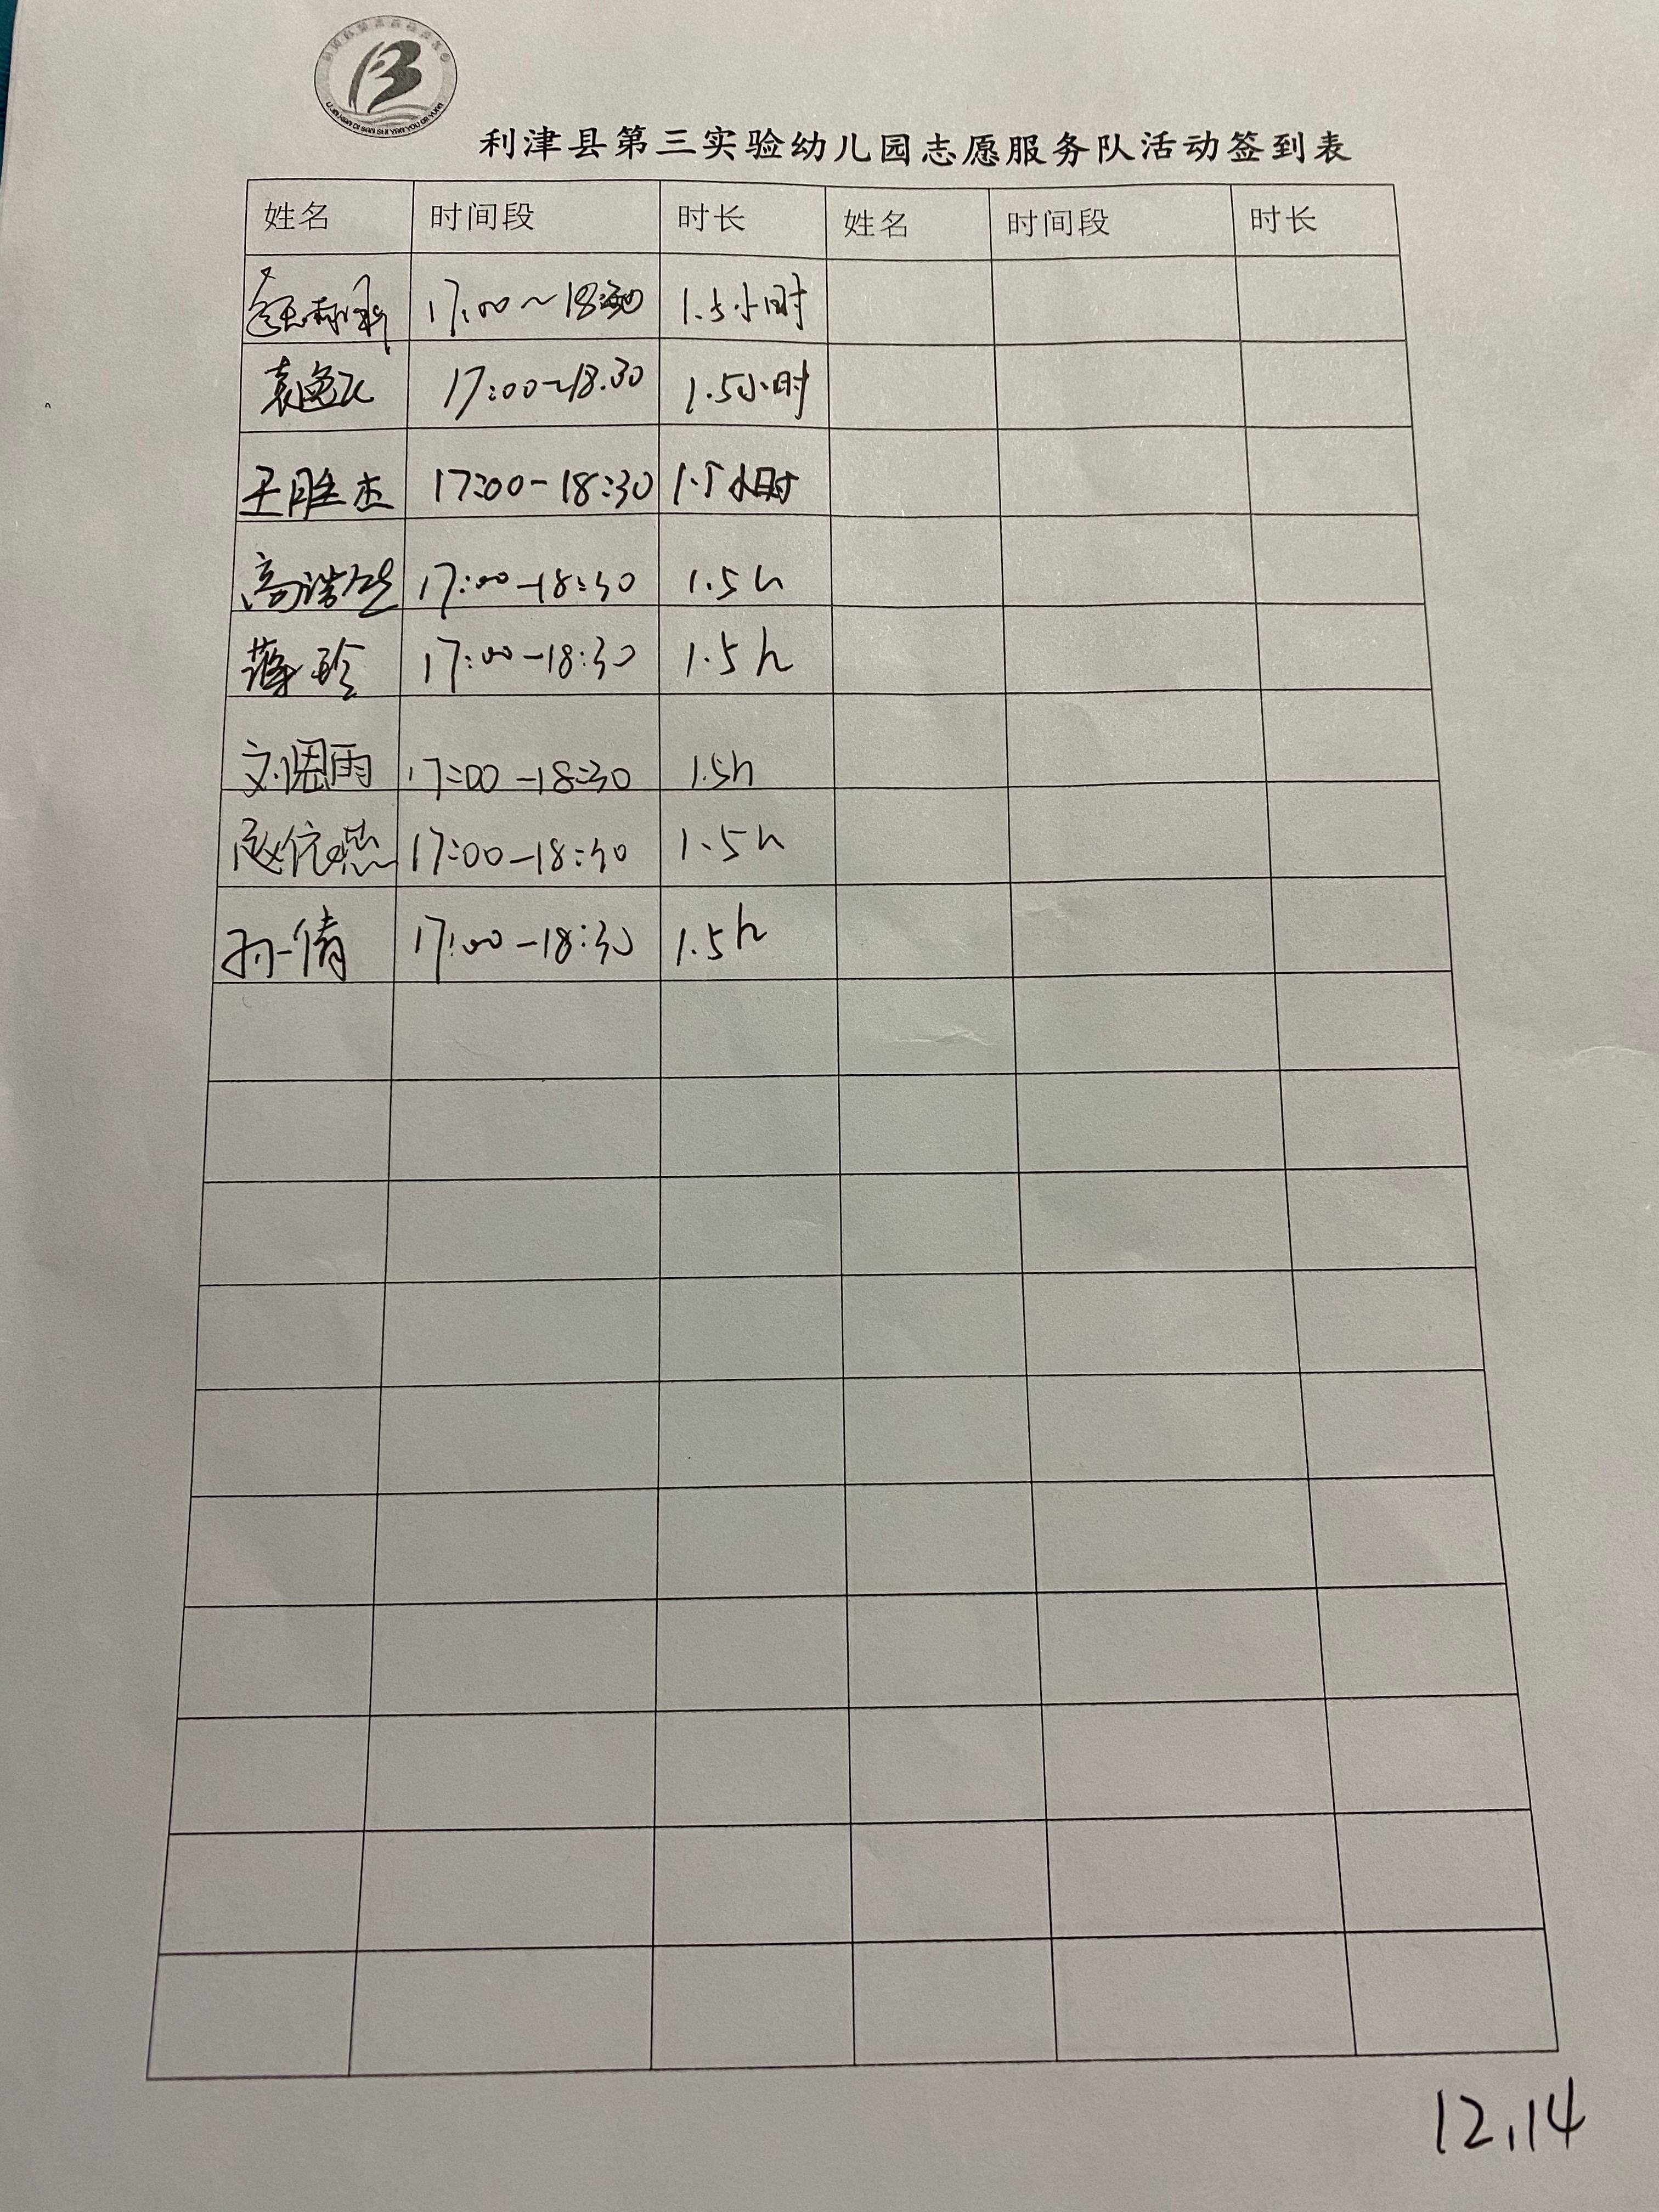 LI JIN XIAN DI SAN SHI YAN YOU ER YUAN
利津县第三实验幼儿园志愿服务队活动签到表
姓名 时间段 时长 姓名 时间段 时长
17:00~18:30 1.5小时
袁逸飞 17:00~18.30 1.5小时
王胜杰 17:00-18:30 1.5小时
高浩然 17:00-18:30 1.5h
薄玲 17:00-18:30 1.5h
刘恩雨 17:00-18:30 1.5h
17:00-18:30 1.5h
孙倩 17:00-18:30 1.5h
12.14